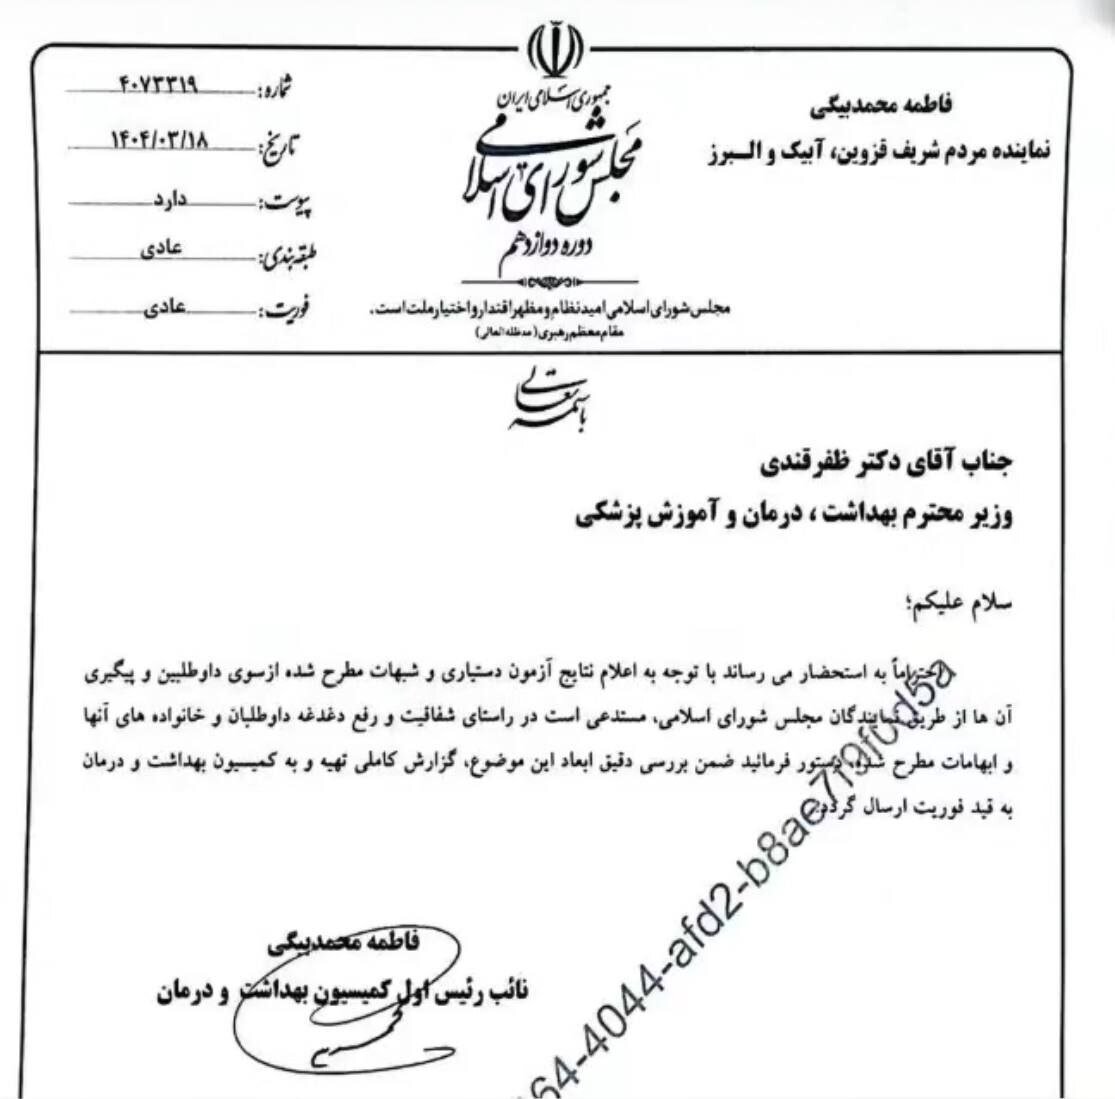 فاطمه محمدبیگی
نماینده مردم شریف قزوین، آبیک و البرز
جمهوری اسلامی ایران
مجلس شورای اسلامی
دوره دوازدهم
مجلس شورای اسلامی امید نظام و مظهر اقتدار و اختیار ملت است.
مقام معظم رهبری (مدظله العالی)
شماره: ۴۰۷۳۳۱۹
تاریخ: ۱۴۰۴/۰۳/۱۸
پیوست: دارد
طبقه‌بندی: عادی
فوریت: عادی
باسمه تعالی
جناب آقای دکتر ظفرقندی
وزیر محترم بهداشت ، درمان و آموزش پزشکی
سلام علیکم؛
احتراماً به استحضار می رساند با توجه به اعلام نتایج آزمون دستیاری و شبهات مطرح شده ازسوی داوطلبین و پیگیری
آن ها از طریق نمایندگان مجلس شورای اسلامی، مستدعی است در راستای شفافیت و رفع دغدغه داوطلبان و خانواده های آنها
و ابهامات مطرح شده، دستور فرمائید ضمن بررسی دقیق ابعاد این موضوع، گزارش کاملی تهیه و به کمیسیون بهداشت و درمان
به قید فوریت ارسال گردد.
فاطمه محمدبیگی
نائب رئیس اول کمیسیون بهداشت و درمان
64-4044-afd2-b8ae7f9f0d5a